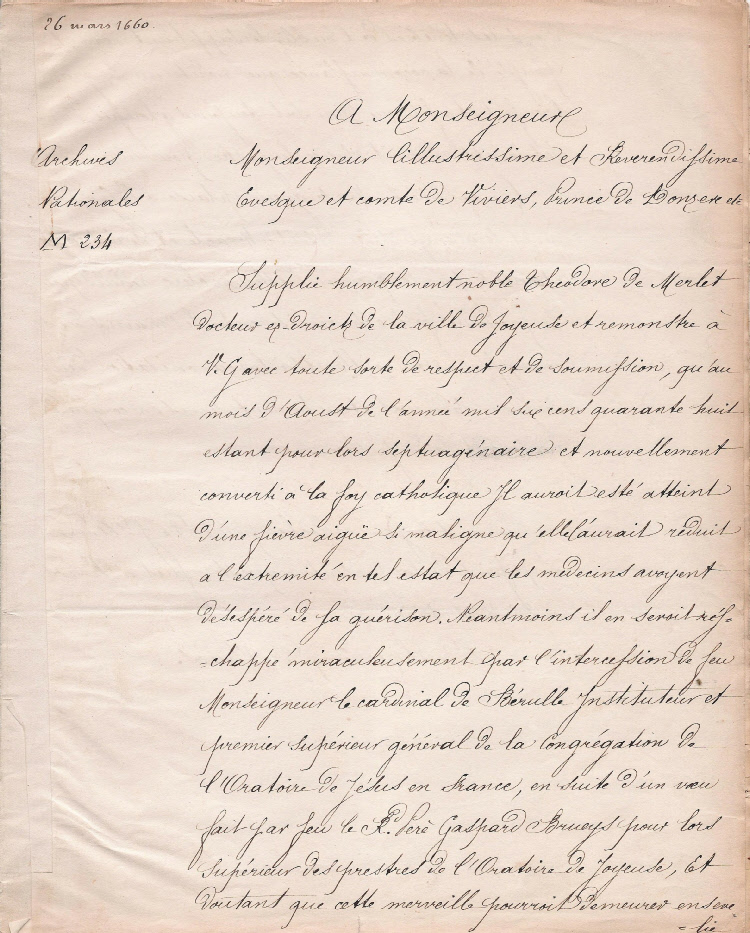 26 mars 1660
A Monseigneur
Archives
Nationales
M 234
Monseigneur l'illustrissime et Reverendissime
Evesque et comte de Viviers, Prince de Donzere etc
Supplie humblement noble Theodore de Merlet
docteur ez-droictz de la ville de Joyeuse et remonstre à
V. G avec toute sorte de respect et de soumission, qu'au
mois d'Aoust de l'année mil six cens quarante huit
estant pour lors septuagénaire et nouvellement
converti à la foy catholique Il auroit esté atteint
d'une fièvre aigüe si maligne qu'elle l'aurait réduit
a l'extremité en tel estat que les médecins avoyent
désespéré de sa guérison. Néantmoins il en seroit rés-
-chappé miraculeusement par l'intercession de feu
Monseigneur le cardinal de Bérulle Instituteur et
premier supérieur général de la Congrégation de
l'Oratoire de Jésus en France, en suite d'un vœu
fait par feu le Rd. Père Gaspard Brueys pour lors
supérieur des prestres de l'Oratoire de Joyeuse, Et
doutant que cette merveille pourroit demeurer enseve
=lie